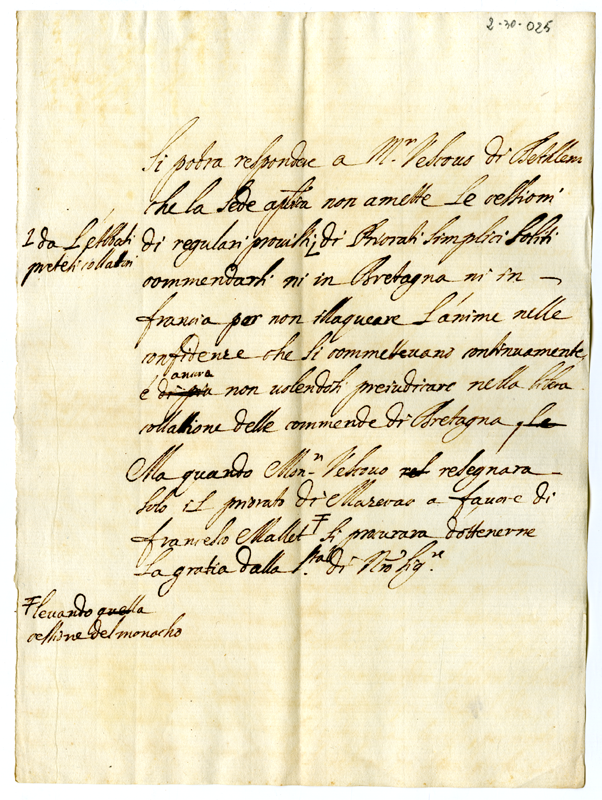 2-30-025
Si potra respondere a Mr. Vescouo di Betlem
che la Sede aplica non amette Le cessioni
di regulari prouisti di Priorati Simplici Soliti
1 da L'Abbati
pretesi collatori
commendarsi ni in Bretagna ni in
francia per non illaqueare L'anime nelle
confidenze che si commetteuano continuamente,
ancora
e di piu non uolendosi preiudicare nella libera
collatione delle commende di Bretagna, Le
Ma quando Monr. Vescouo resegnara
solo il priorato di Mazerac a fauore di
francesco Mallet Ŧ si procurara dottenerne
la gratia dalla Sta. di Nro Sigre.
Ŧ leuando quella
cessione del monacho